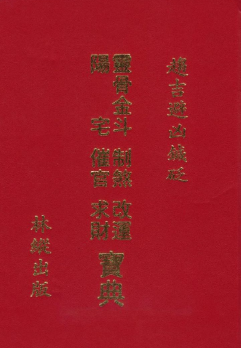 趨吉避凶鍼砭
靈骨金斗 制煞 改運
陽宅 催官 求財
寶典
林鏦出版